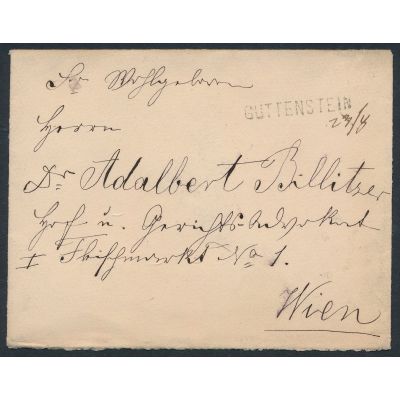 Sr Wohlgeboren
GUTTENSTEIN
29/8
Herrn
Dr Adalbert Billitzer
Hof u. Gerichts Advokat
I Fleischmarkt No 1.
Wien